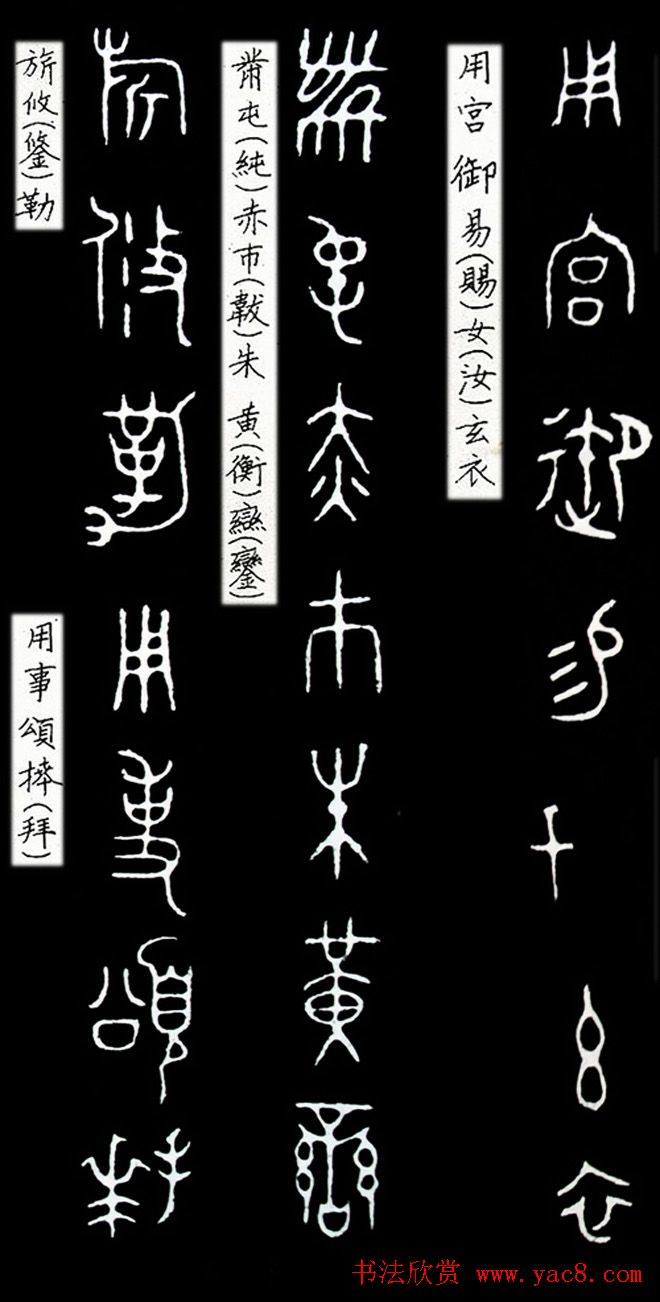 用宮御易(賜)女(汝)玄衣
黹屯(純)赤巿(韍)朱黃(衡)䜌(鑾)
旂攸(鋚)勒
用事頌𢷎(拜)
书法欣赏 www.yac8.com